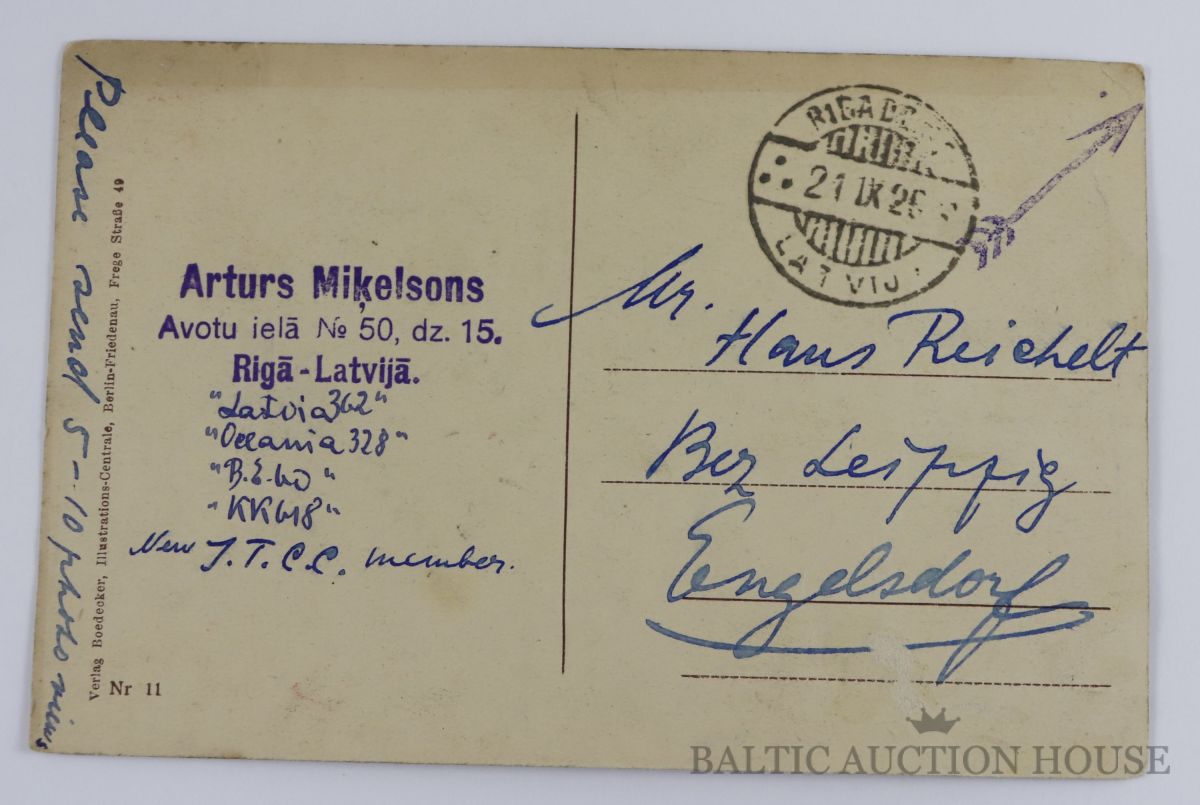 Please send 5-10 photo views
Verlag Boedecker, Illustrations-Centrale, Berlin-Friedenau, Frege Straße 49
Nr 11
Arturs Miķelsons
Avotu ielā № 50, dz. 15.
Rigā-Latvijā.
"Latvia 362"
"Oceania 328"
"B.E.60"
"KK618"
New I.T.C.C. member.
RIGA
21 IX 26
LATVIJ
Mr.
Hans Reichelt
Bez Leipzig
Engelsdorf
BALTIC AUCTION HOUSE